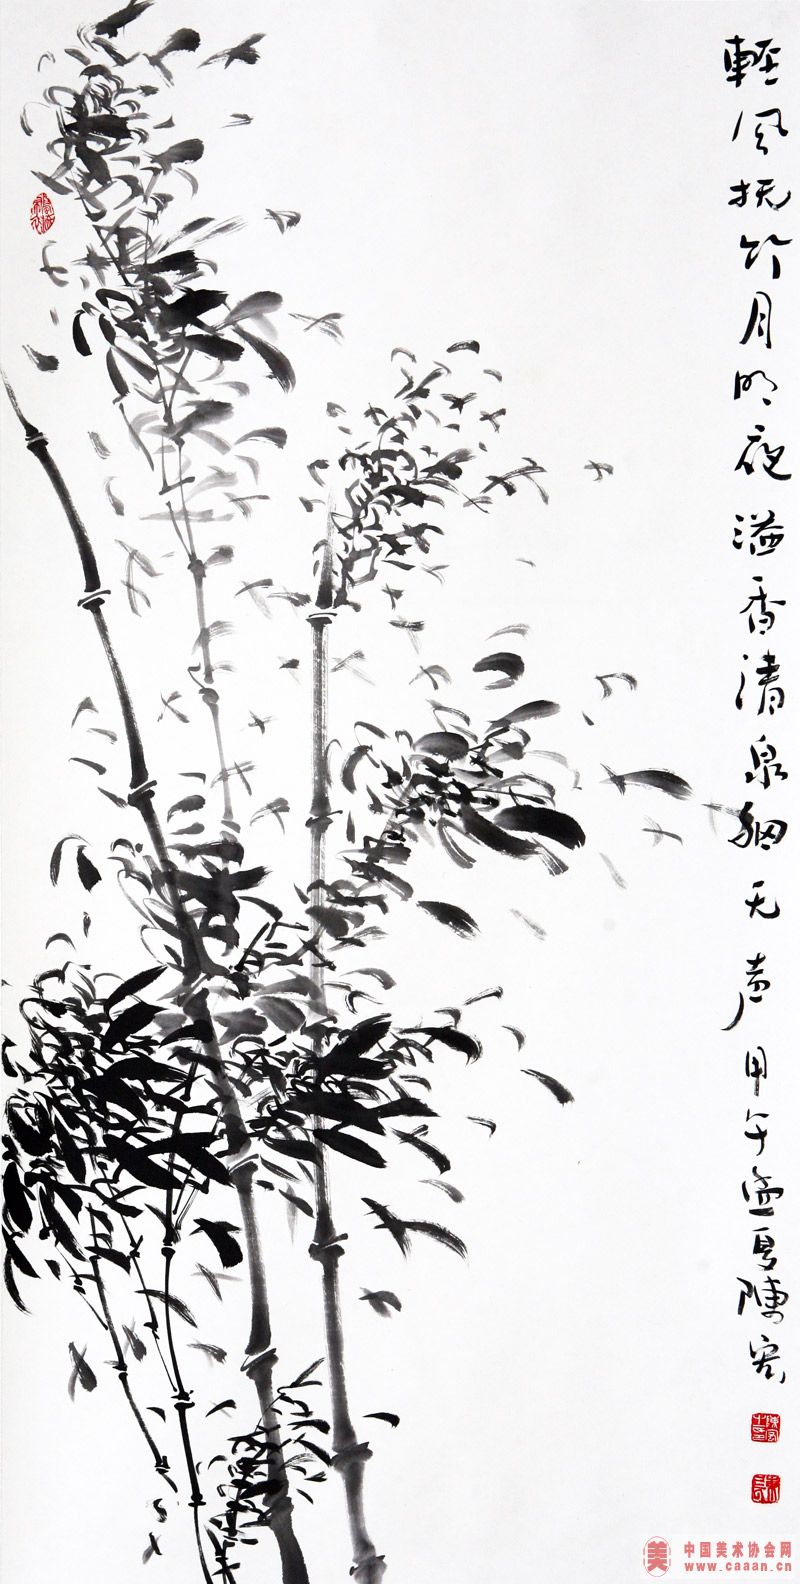 輕风抚竹月明夜溢香清泉細无声甲午孟夏陳宏
中国美术协会网
www.caaan.cn